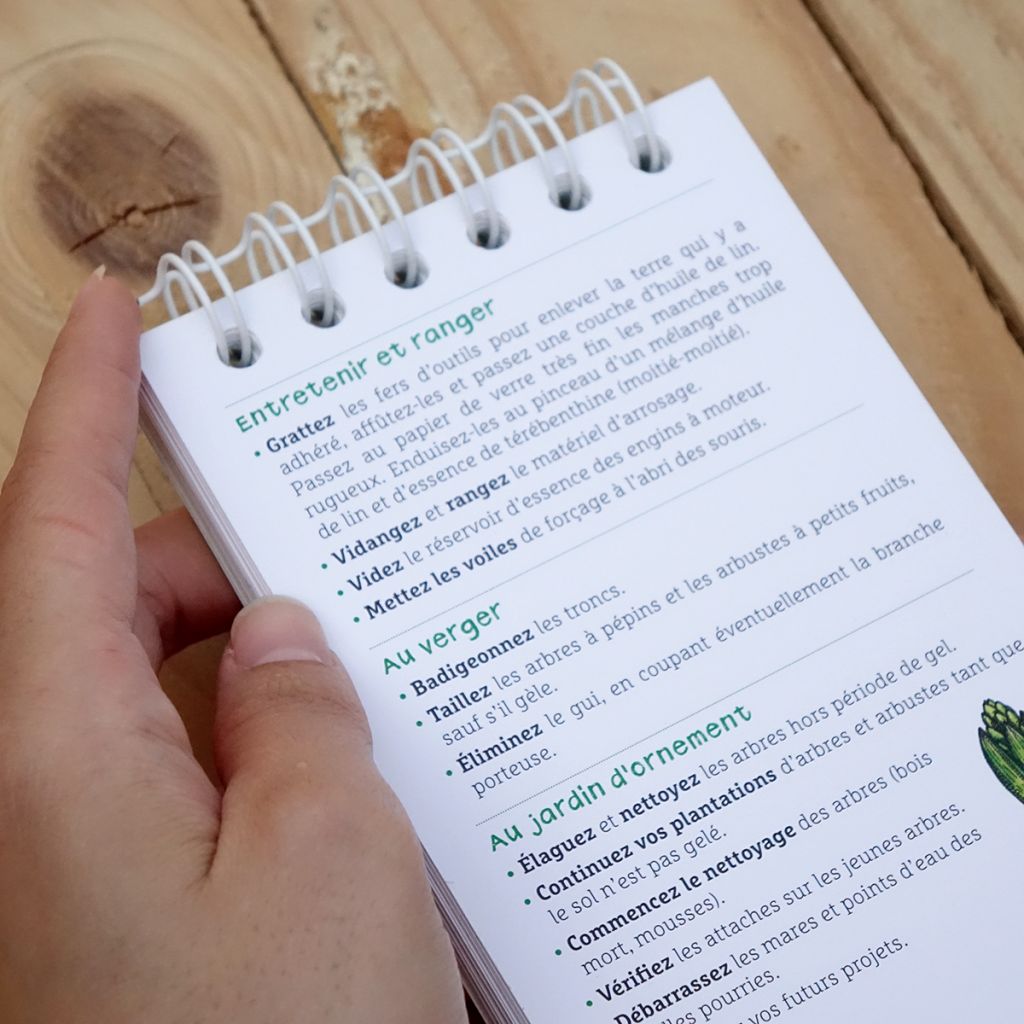 Entretenir et ranger
• Grattez les fers d'outils pour enlever la terre qui y a
adhéré, affûtez-les et passez une couche d'huile de lin.
Passez au papier de verre très fin les manches trop
rugueux. Enduisez-les au pinceau d'un mélange d'huile
de lin et d'essence de térébenthine (moitié-moitié).
• Vidangez et rangez le matériel d'arrosage.
• Videz le réservoir d'essence des engins à moteur.
• Mettez les voiles de forçage à l'abri des souris.
Au verger
• Badigeonnez les troncs.
• Taillez les arbres à pépins et les arbustes à petits fruits,
sauf s'il gèle.
• Éliminez le gui, en coupant éventuellement la branche
porteuse.
Au jardin d'ornement
• Élaguez et nettoyez les arbres hors période de gel.
• Continuez vos plantations d'arbres et arbustes tant que
le sol n'est pas gelé.
• Commencez le nettoyage des arbres (bois
mort, mousses).
• Vérifiez les attaches sur les jeunes arbres.
Débarrassez les mares et points d'eau des
pourries.
vos futurs projets.